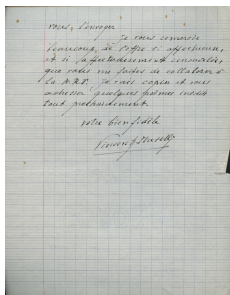 vous, l'envoyer
Je vous remercie
beaucoup, de l'offre si affectueuse,
et si
que vous me faites de collaborer à
la N.R.F. Je vais copier et vous
adresser quelques poèmes inédits
tout prochainement.
votre bien fidèle
Vincent Muselli